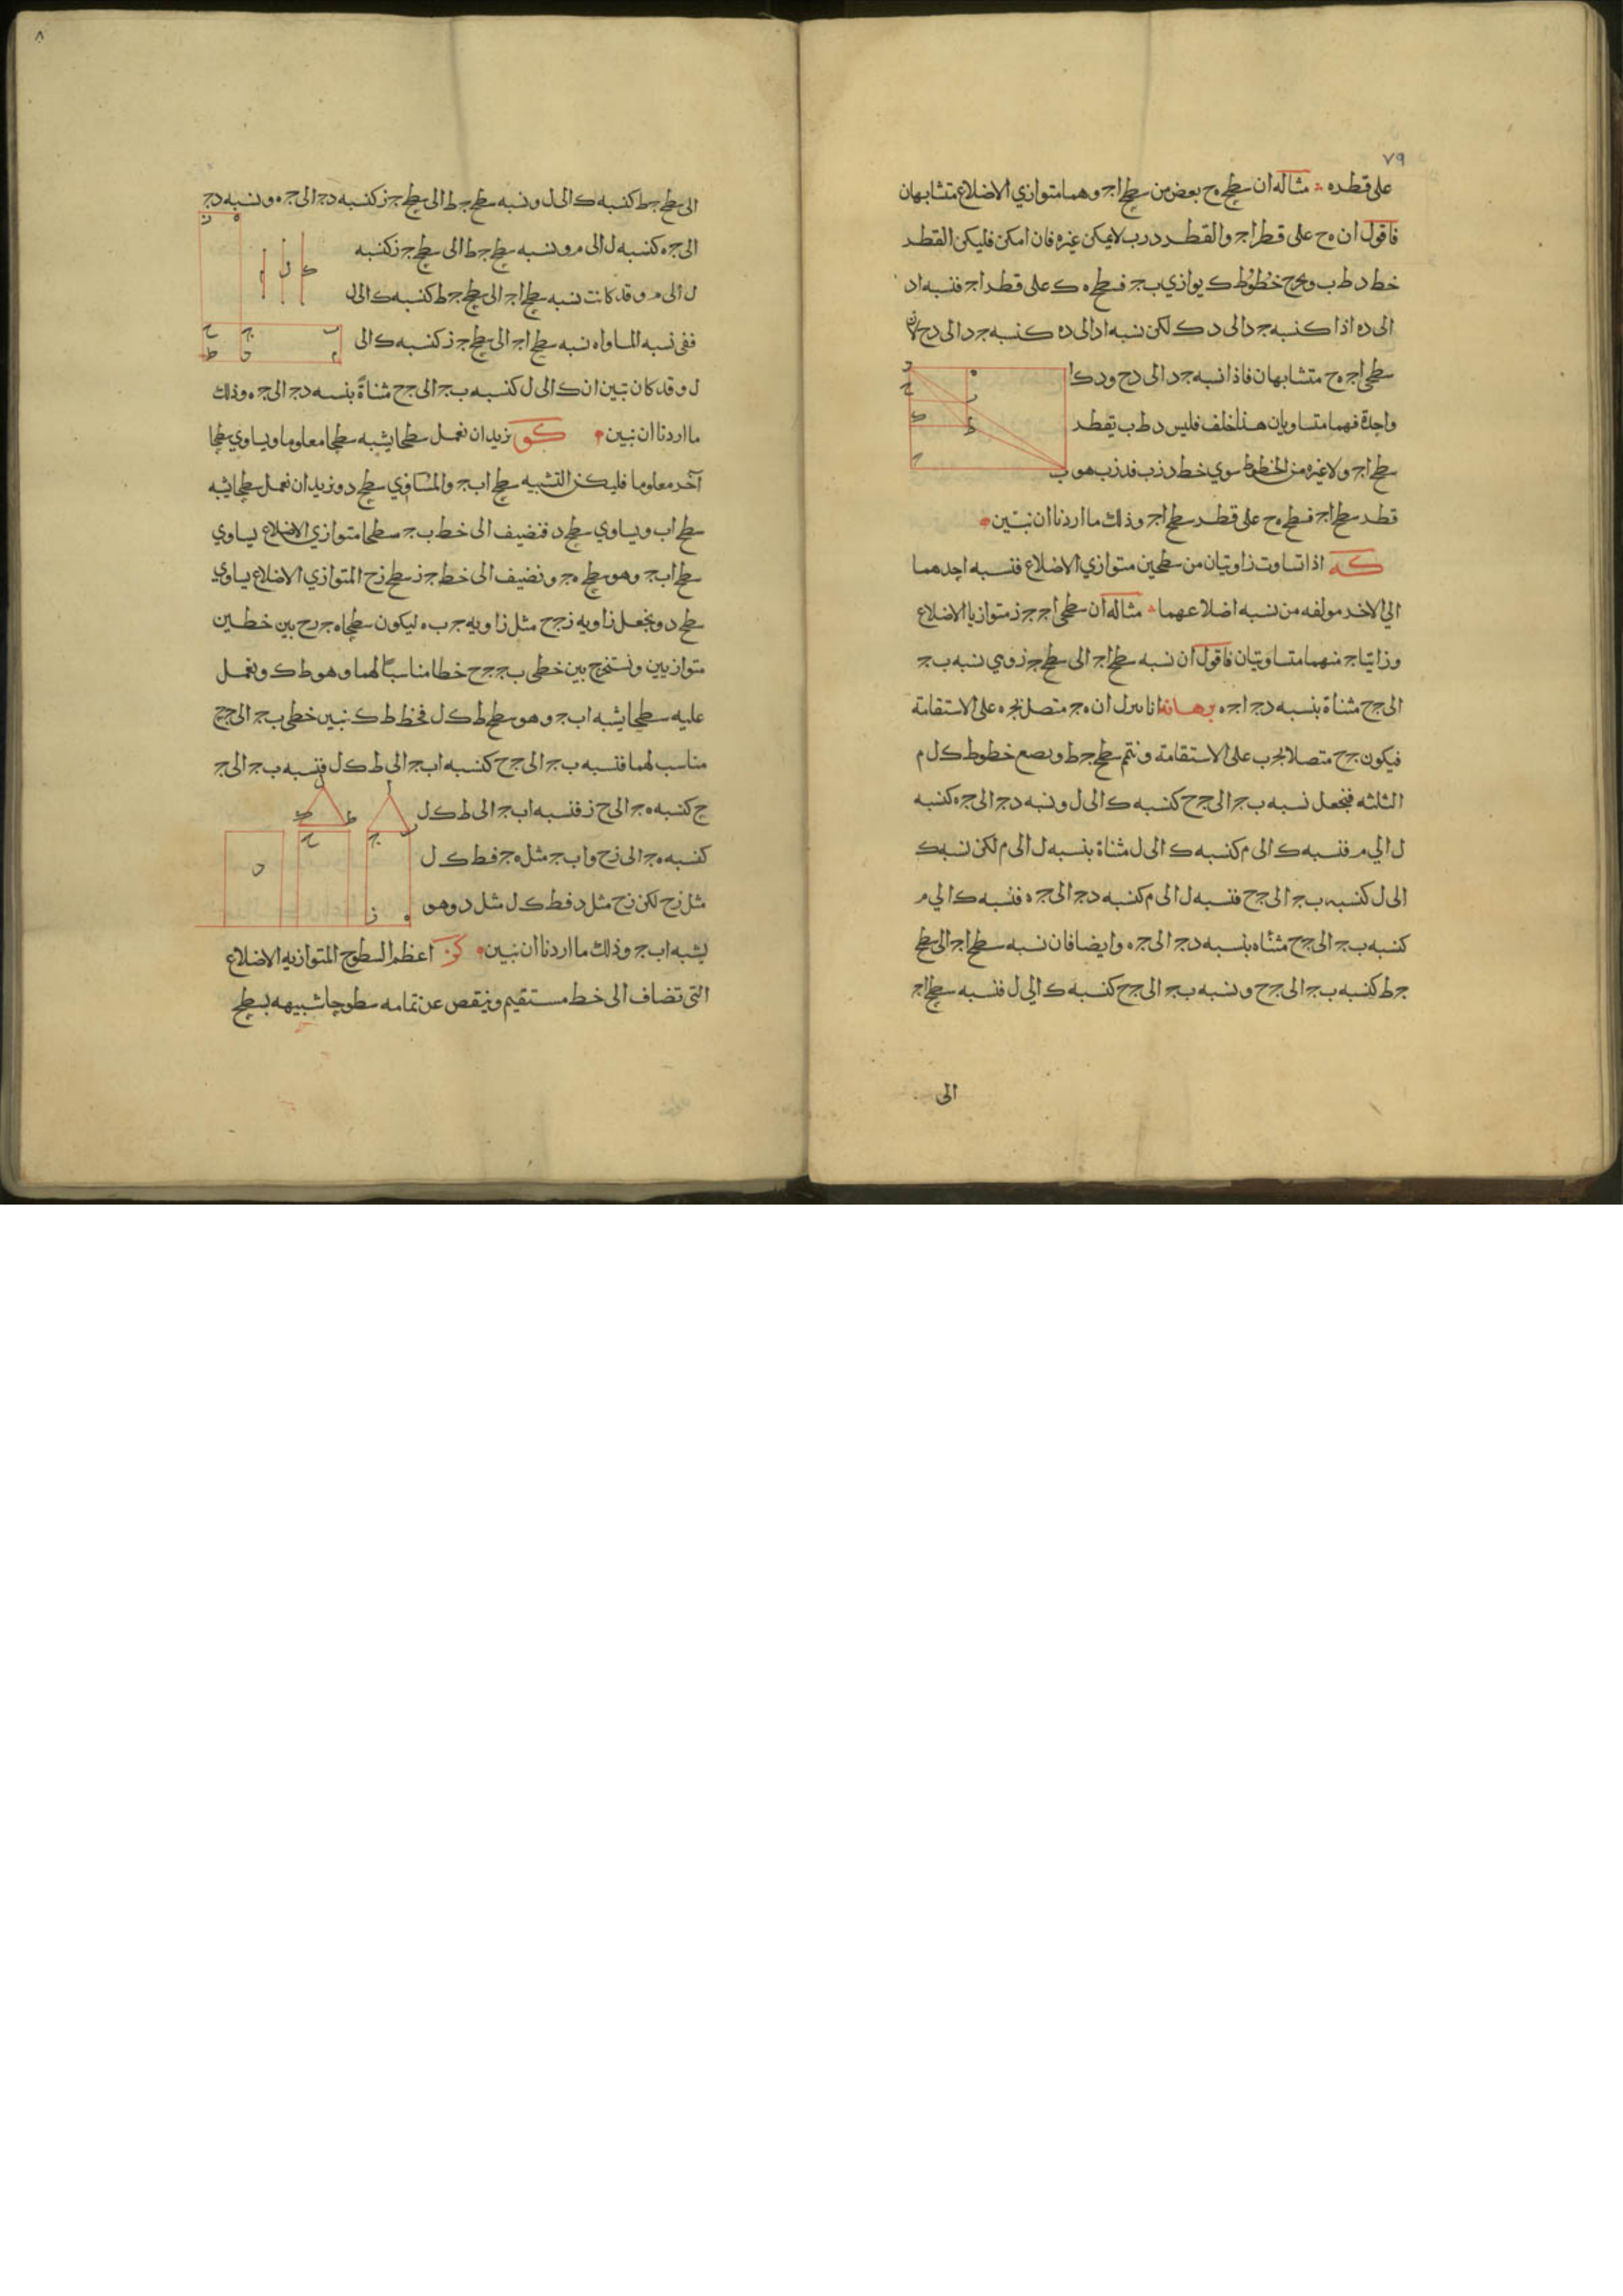 ٧٩
على قطره مثاله ان سطح ه ح بعض من سطح ا ج وهما متوازي الاضلاع متشابهان
فاقول ان ه ح على قطر ا ج والقطر د ر ب لا يمكن غيره فان امكن فليكن القطر
خط د ط ب ونخرج خطوط ط ك يوازي ب ج فسطح ه ك على قطر ا ج فنسبه ا د
الى د ه اذا كنسبه ج د الى د ك لكن نسبه ا د الى د ه كنسبه ج د الى د ح لان
سطحي ا ج ه ح متشابهان فاذا نسبه ج د الى د ح و د ك
واحدة فهما متساويان هذا خلف فليس د ط ب بقطر
سطح ا ج ولا غيره من الخطوط سوي خط د ز ب فد ز ب هو
قطر سطح ا ج فسطح ه ح على قطر سطح ا ج وذلك ما اردنا ان نبين
كه اذا تساوت زاويتان من سطحين متوازي الاضلاع فنسبه احدهما
الي الاخر مولفه من نسبه اضلاعهما مثاله ان سطحي ا ج ج ز متوازيا الاضلاع
وزاويتا ج منهما متساويتان فاقول ان نسبه سطح ا ج الى سطح ج ز وي نسبه ب ج
الى ج ح مثناة بنسبه د ج ا ج ه برهانه انا ننزل ان ه ج متصل بج ه على الاستقامة
فيكون ج ح متصلا بج ب على الاستقامة ونتم سطح ج ط ونضع خطوط ك ل م
الثلثه فنجعل نسبه ب ج الى ج ح كنسبه ك الى ل ونسبه د ج الى ج ه كنسبه
ل الي م فنسبه ك الى م كنسبه ك الى ل مثناة بنسبه ل الى م لكن نسبه ك
الى ل كنسبه ب ج الى ج ح فنسبه ل الى م كنسبه د ج الى ج ه فنسبه ك الي م
كنسبه ب ج الى ج ح مثناه بنسبه د ج الى ج ه وايضا فان نسبه سطح ا ج الى سطح
ج ط كنسبه ب ج الى ج ح ونسبه ب ج الى ج ح كنسبه ك الي ل فنسبه سطح ا ج
الى
٨
الى سطح ج ط كنسبه ك الى ل ونسبه سطح ج ط الى سطح ج ز كنسبه د ج الى ج ه ونسبه د ج
الى ج ه كنسبه ل الى م ونسبه سطح ج ط الى سطح ج ز كنسبه
ل الى م وقد كانت نسبه سطح ا ج الى سطح ج ط كنسبه ك الى ل
ففي نسبه المساواه نسبه سطح ا ج الى سطح ج ز كنسبه ك الى
ل وقد كان تبين ان ك الى ل كنسبه ب ج الى ج ح مثناة بنسبه د ج الى ج ه وذلك
ما اردنا ان نبين كو نريد ان نعمل سطحا يشبه سطحا معلوما ويساوي سطحا
آخر معلوما فليكن التشبيه سطح ا ب ج والمساوي سطح د ونريد ان نعمل سطحا يشبه
سطح ا ب ويساوي سطح د فنضيف الى خط ب ج سطحا متوازي الاضلاع يساوي
سطح ا ب ج وهو سطح ه ج ونضيف الى خط ج ز سطح ز ح المتوازي الاضلاع يساوي
سطح د ونجعل زاويه ز ج ح مثل زاويه ج ب ه ليكون سطحا ه ج ز ح بين خطين
متوازيين ونستخرج بين خطي ب ج ج ح خطا مناسبا لهما وهو ط ك ونعمل
عليه سطحا يشبه ا ب ج وهو سطح ط ك ل فخط ط ك بين خطي ب ج الى ج ح
مناسب لهما فنسبه ب ج الى ج ح كنسبه ا ب ج الى ط ك ل فنسبه ب ج الى ج
ح كنسبه ه ج الى ح ز فنسبه ا ب ج الى ط ك ل
كنسبه ه ج الى ز ح وا ب ج مثل ه ج فط ك ل
مثل ز ح لكن ز ح مثل د فط ك ل مثل د وهو
يشبه ا ب ج وذلك ما اردنا ان نبين كز اعظم السطوح المتوازيه الاضلاع
التي تضاف الى خط مستقيم وينقص عن تمامه سطوحا شبيهه بسطح